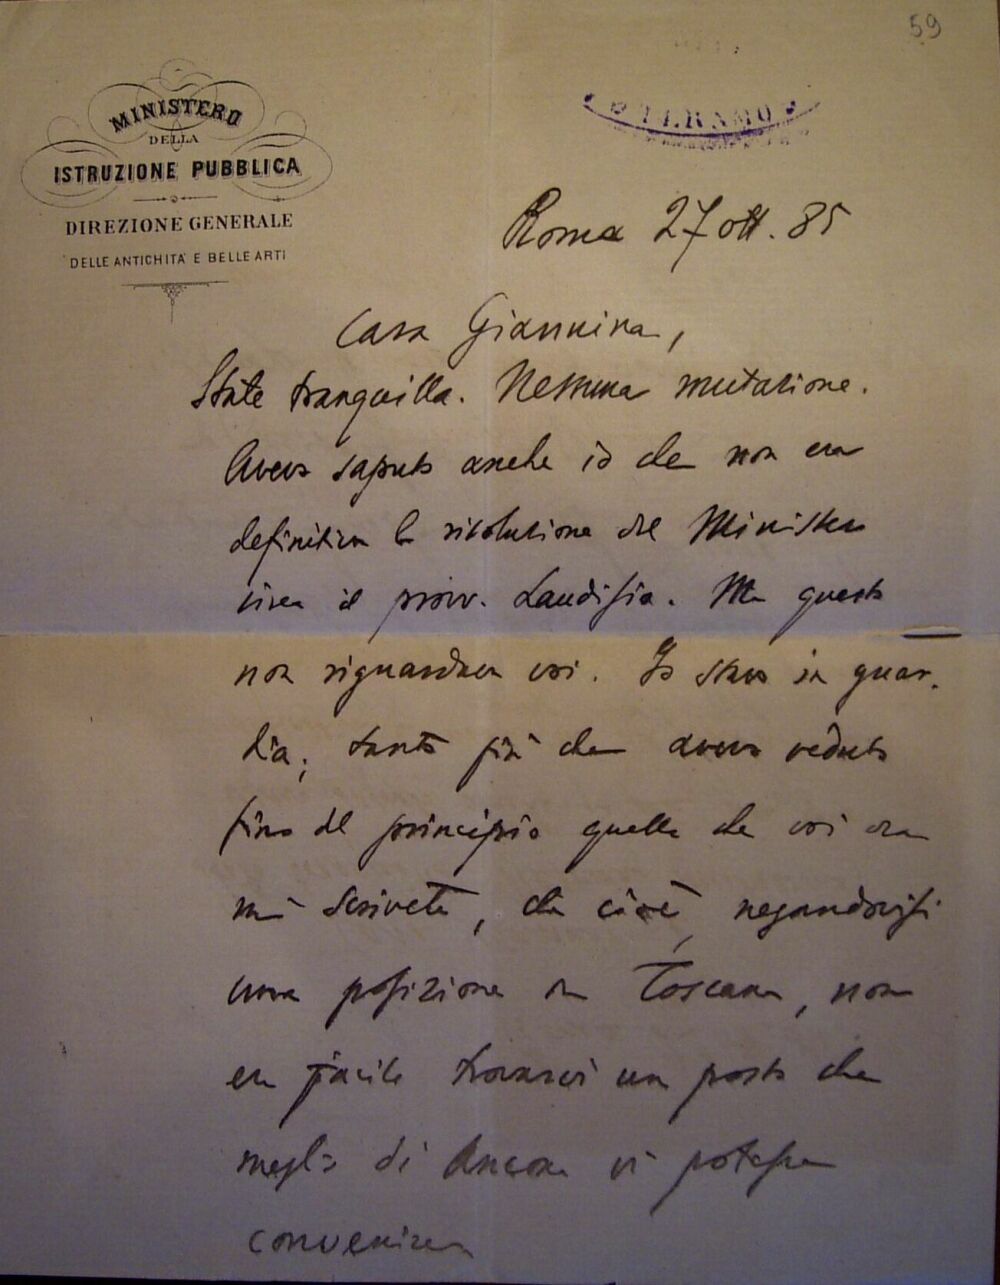 59
TERAMO
MINISTERO
DELLA
ISTRUZIONE PUBBLICA
DIREZIONE GENERALE
DELLE ANTICHITA' E BELLE ARTI
Roma 27 ott. 85
Cara Giannina,
State tranquilla. Nessuna mutazione.
Avevo saputo anche io che non era
definitiva la risoluzione del Ministero
circa il provv. Laudisio. Ma questo
non riguardava voi. Io stavo in guar-
dia; tanto più che avevo veduto
fino dal principio quello che voi ora
mi scrivete, che cioè, negandovisi
una posizione in Toscana, non
era facile trovarvi un posto che
meglio di Ancona vi potesse
convenire